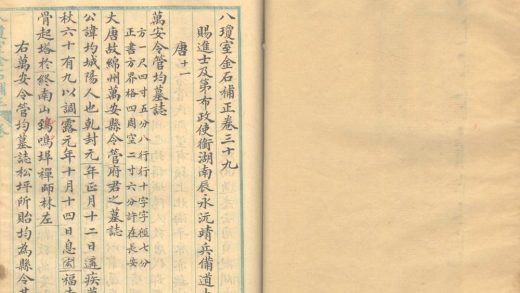 八瓊室金石補正卷三十九
賜進士及第布政使銜湖南辰永沅靖兵備道
唐十一
萬安令管均墓誌
方一尺四寸五分八行行十字字徑七分
正書方界格四周空二寸六分許在長安
大唐故綿州萬安縣令管府君之墓誌
公諱均城陽人也乾封元年正月十二日遘疾
杖六十有九以調露元年十月十四日息
骨起塔於終南山鴟鳴埠禪師林左
右萬安令管均墓誌松坪所貽均為縣令其